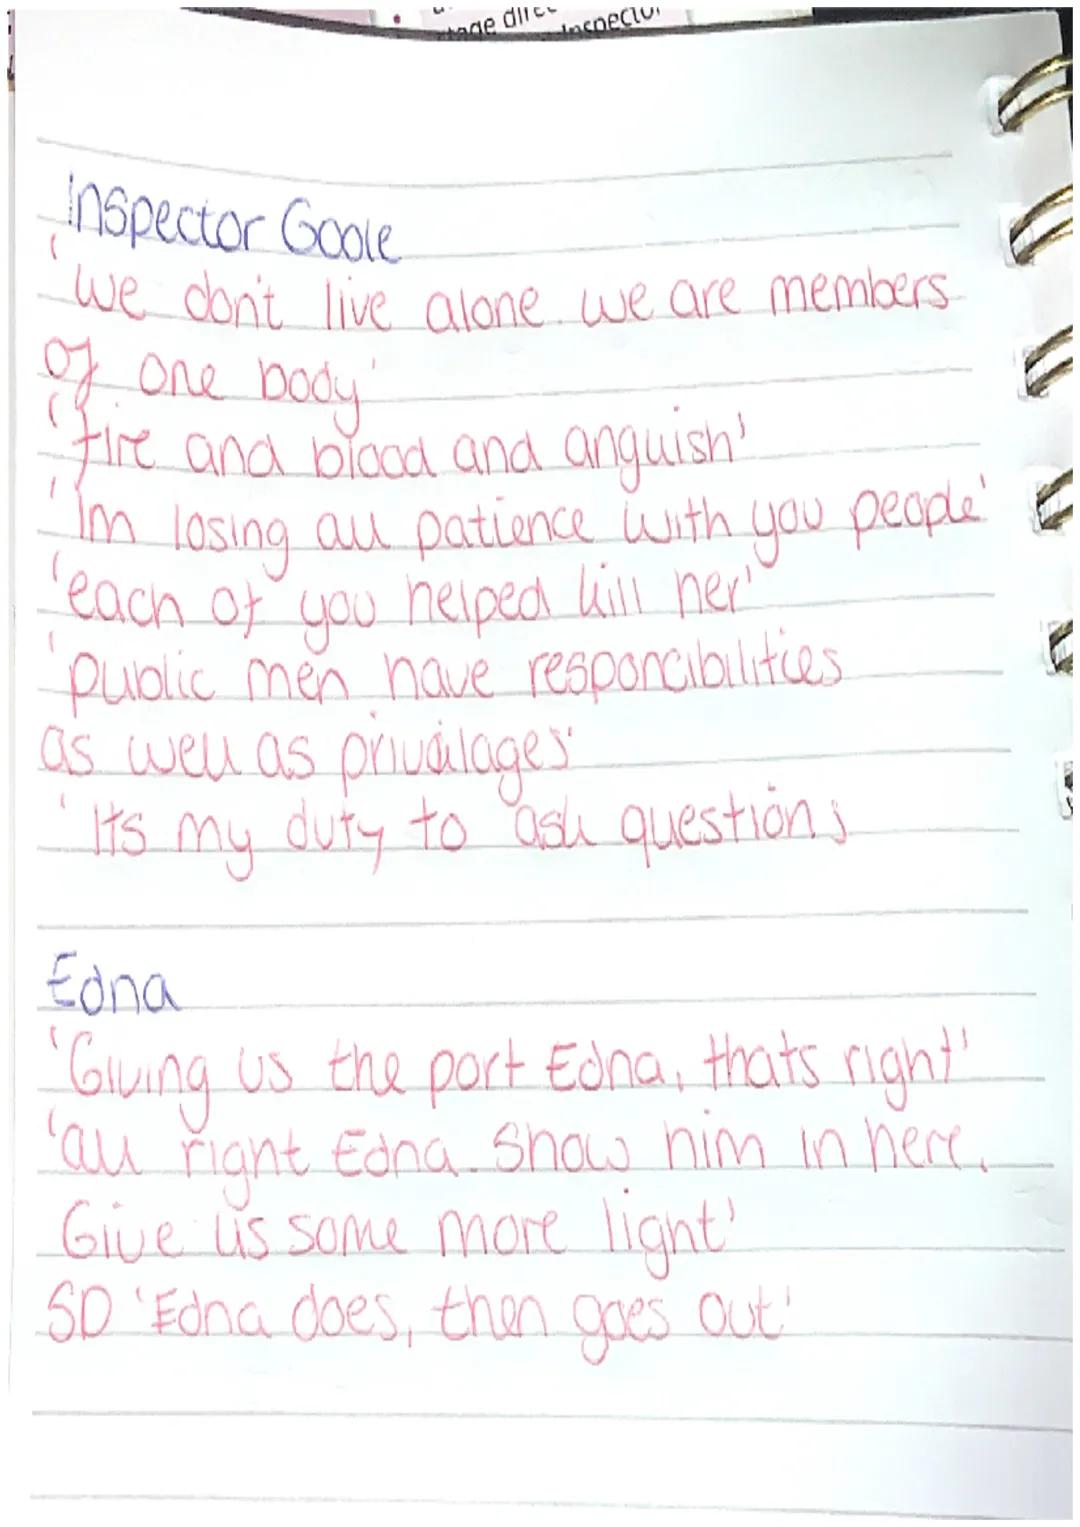 tage direc
Inspector
Inspector Goole
'We don't live alone. We are members
of one body'
'fire and blood and anguish'
'Im losing all patience with you people'
'each of you helped kill her'
'public men have responcibilities
as well as privailages'
'Its my duty to ask questions
Edna
'Giving us the port Edna, thats right'
'all right Edna. Show him in here.
Give us some more light'
SD 'Edna does, then goes out'